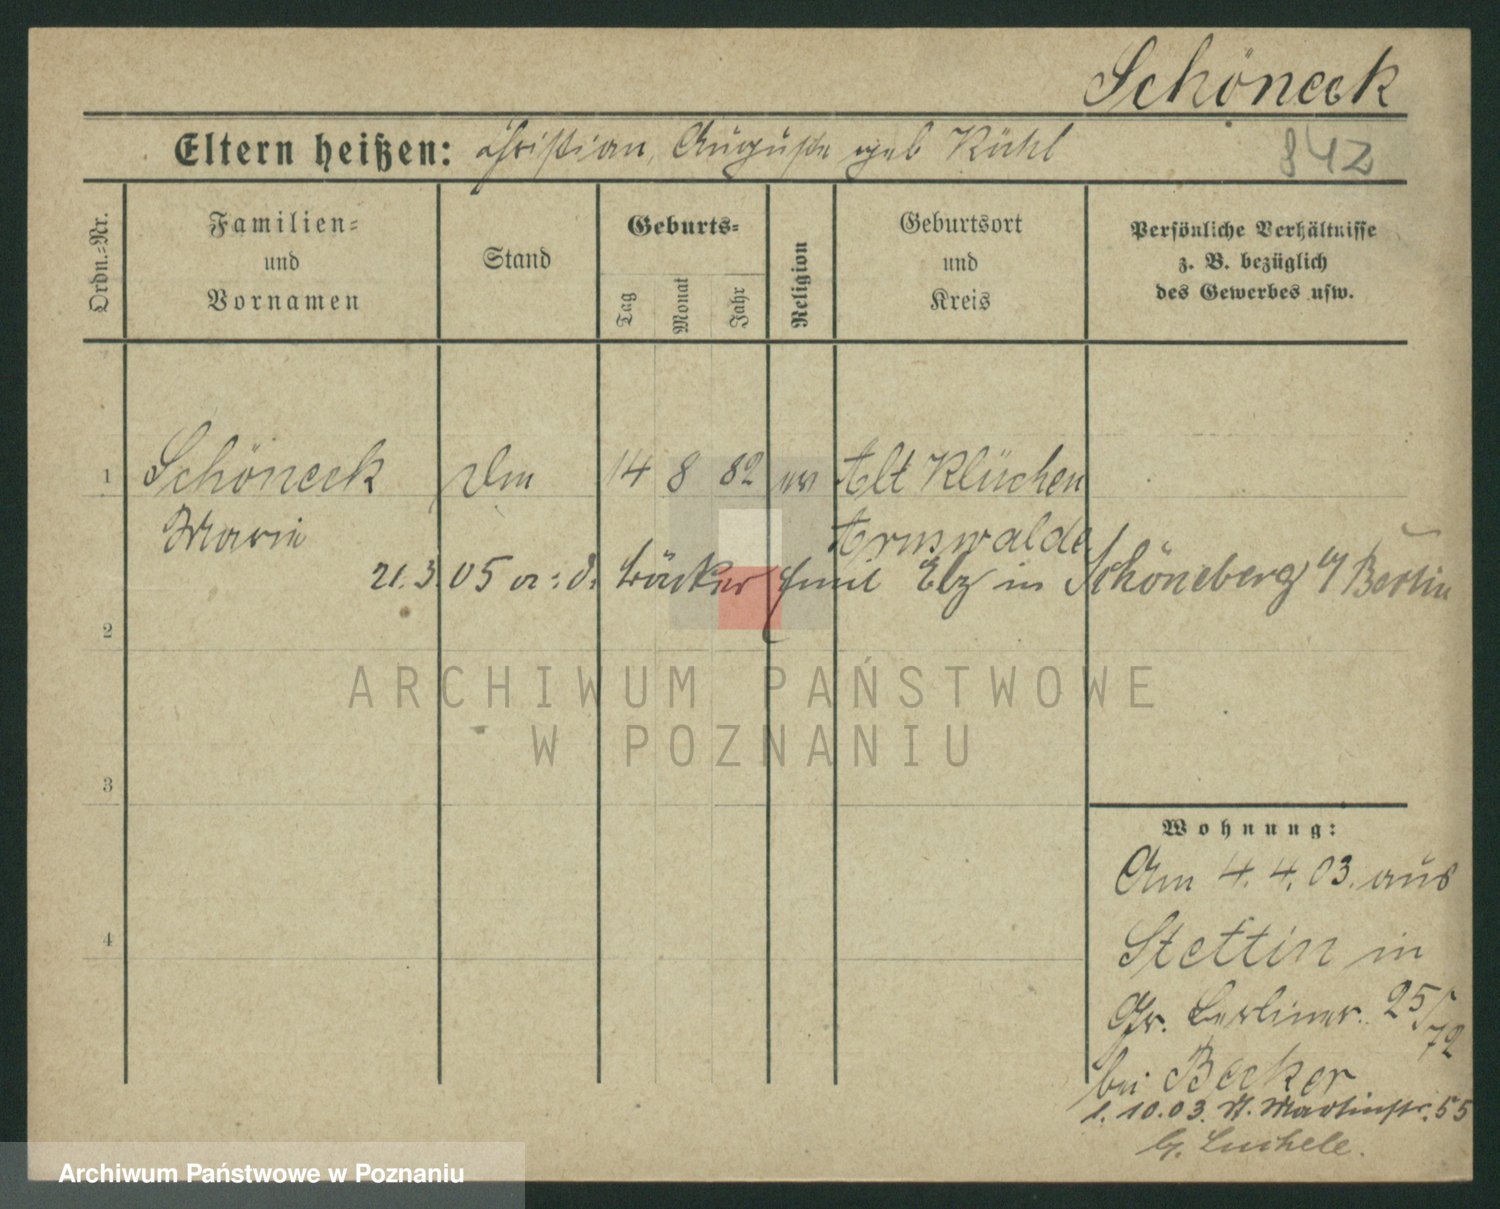 Schöneck
Eltern heißen: Christian, Auguste geb Kühl
842
Ordn.-Nr.
Familien- und Vornamen
Stand
Geburts-
Tag
Monat
Jahr
Religion
Geburtsort und Kreis
Persönliche Verhältnisse z. B. bezüglich des Gewerbes usw.
1 Schöneck 14 8 82 ev Alt Klücken
Marie Arnswalde
21.3.05 Bäcker Emil Elz in Schöneberg b/ Berlin
2
ARCHIWUM PAŃSTWOWE
W POZNANIU
3
4
Wohnung:
Am 4.4.03. aus
Stettin in
Gr. Berliner. 25/72
bei Becker
1.10.03. St. Martinstr. 55
b.
Archiwum Państwowe w Poznaniu